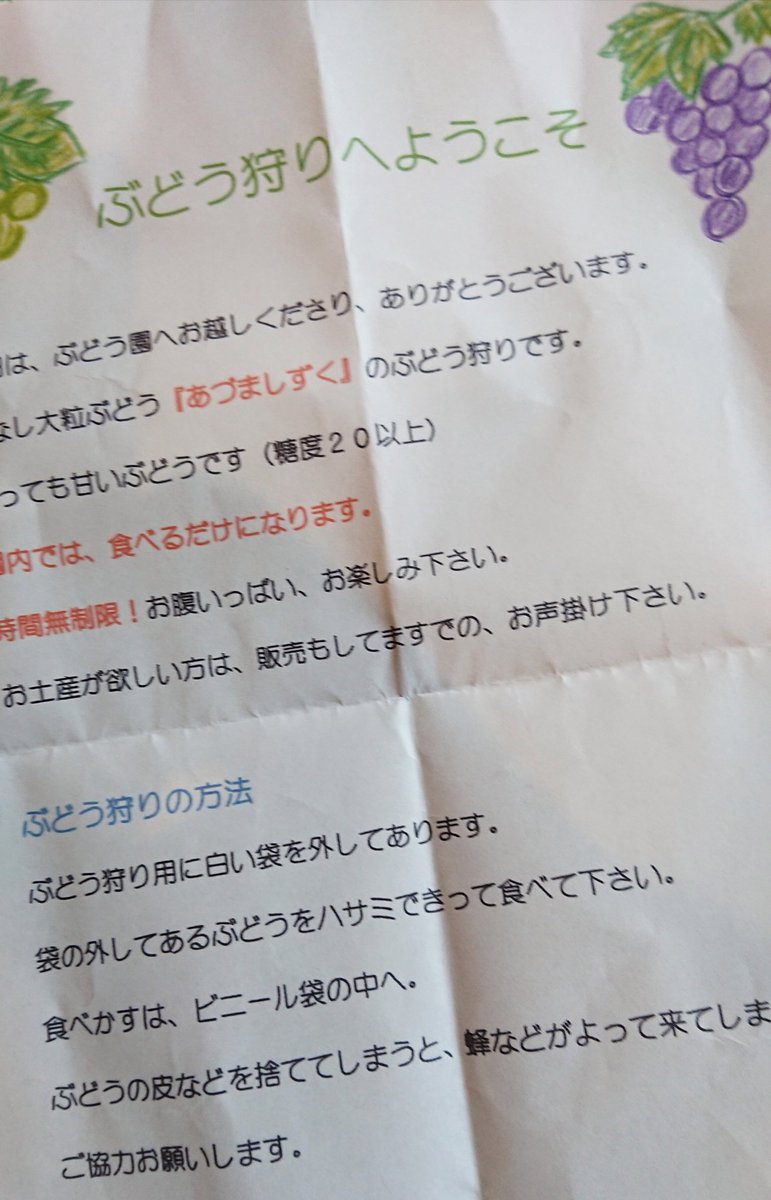 ぶどう狩りへようこそ
は、ぶどう園へお越しくださり、ありがとうございます。
なし大粒ぶどう『あづましずく』のぶどう狩りです。
っても甘いぶどうです（糖度２０以上）
内では、食べるだけになります。
時間無制限！お腹いっぱい、お楽しみ下さい。
お土産が欲しい方は、販売もしてますでの、お声掛け下さい。
ぶどう狩りの方法
ぶどう狩り用に白い袋を外してあります。
袋の外してあるぶどうをハサミできって食べて下さい。
食べかすは、ビニール袋の中へ。
ぶどうの皮などを捨ててしまうと、蜂などがよって来てしま
ご協力お願いします。